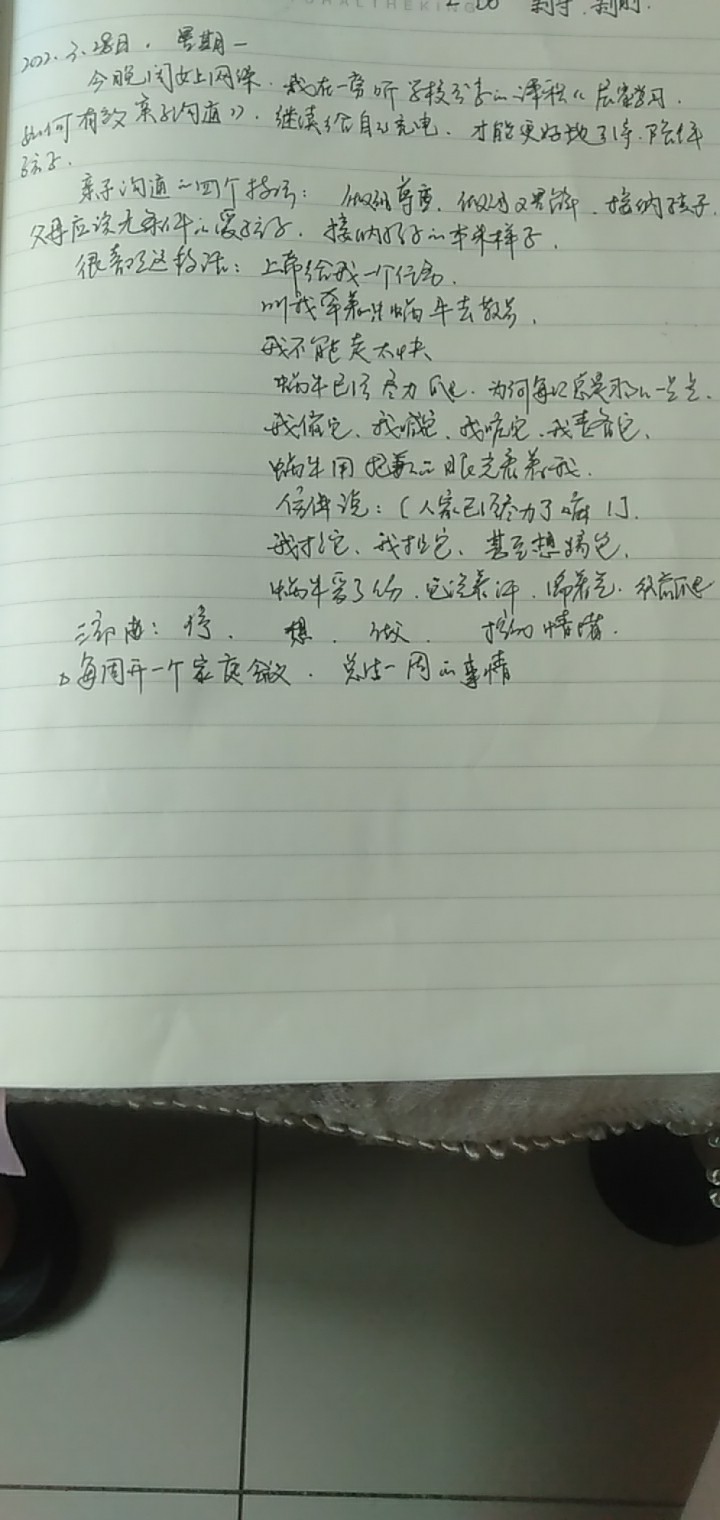 2022.3.28日．星期一
今晚闺女上网课．我在一旁听学校分享的课程《居家学习．
如何有效亲子沟通》．继续给自己充电．才能更好地了解．陪伴
孩子．
亲子沟通的四个技巧：做到尊重．做到又
接纳孩子．
父母应该无条件的爱孩子．接纳孩子的本来样子．
很喜欢这段话：上帝给我一个任务．
叫我牵着一只蜗牛去散步．
我不能走太快
蜗牛已经尽力爬．为何每次总是那么一点点．
我催它．我唬它．我责备它．
蜗牛用抱歉的眼光看着我．
仿佛说：（人家已经尽力了嘛！]．
我拉它．我扯它．甚至想踢它．
蜗牛受了伤．它流着汗．喘着气．往前爬
三部曲：停．想．做．接纳情绪．
每周开一个家庭会议．总结一周的事情